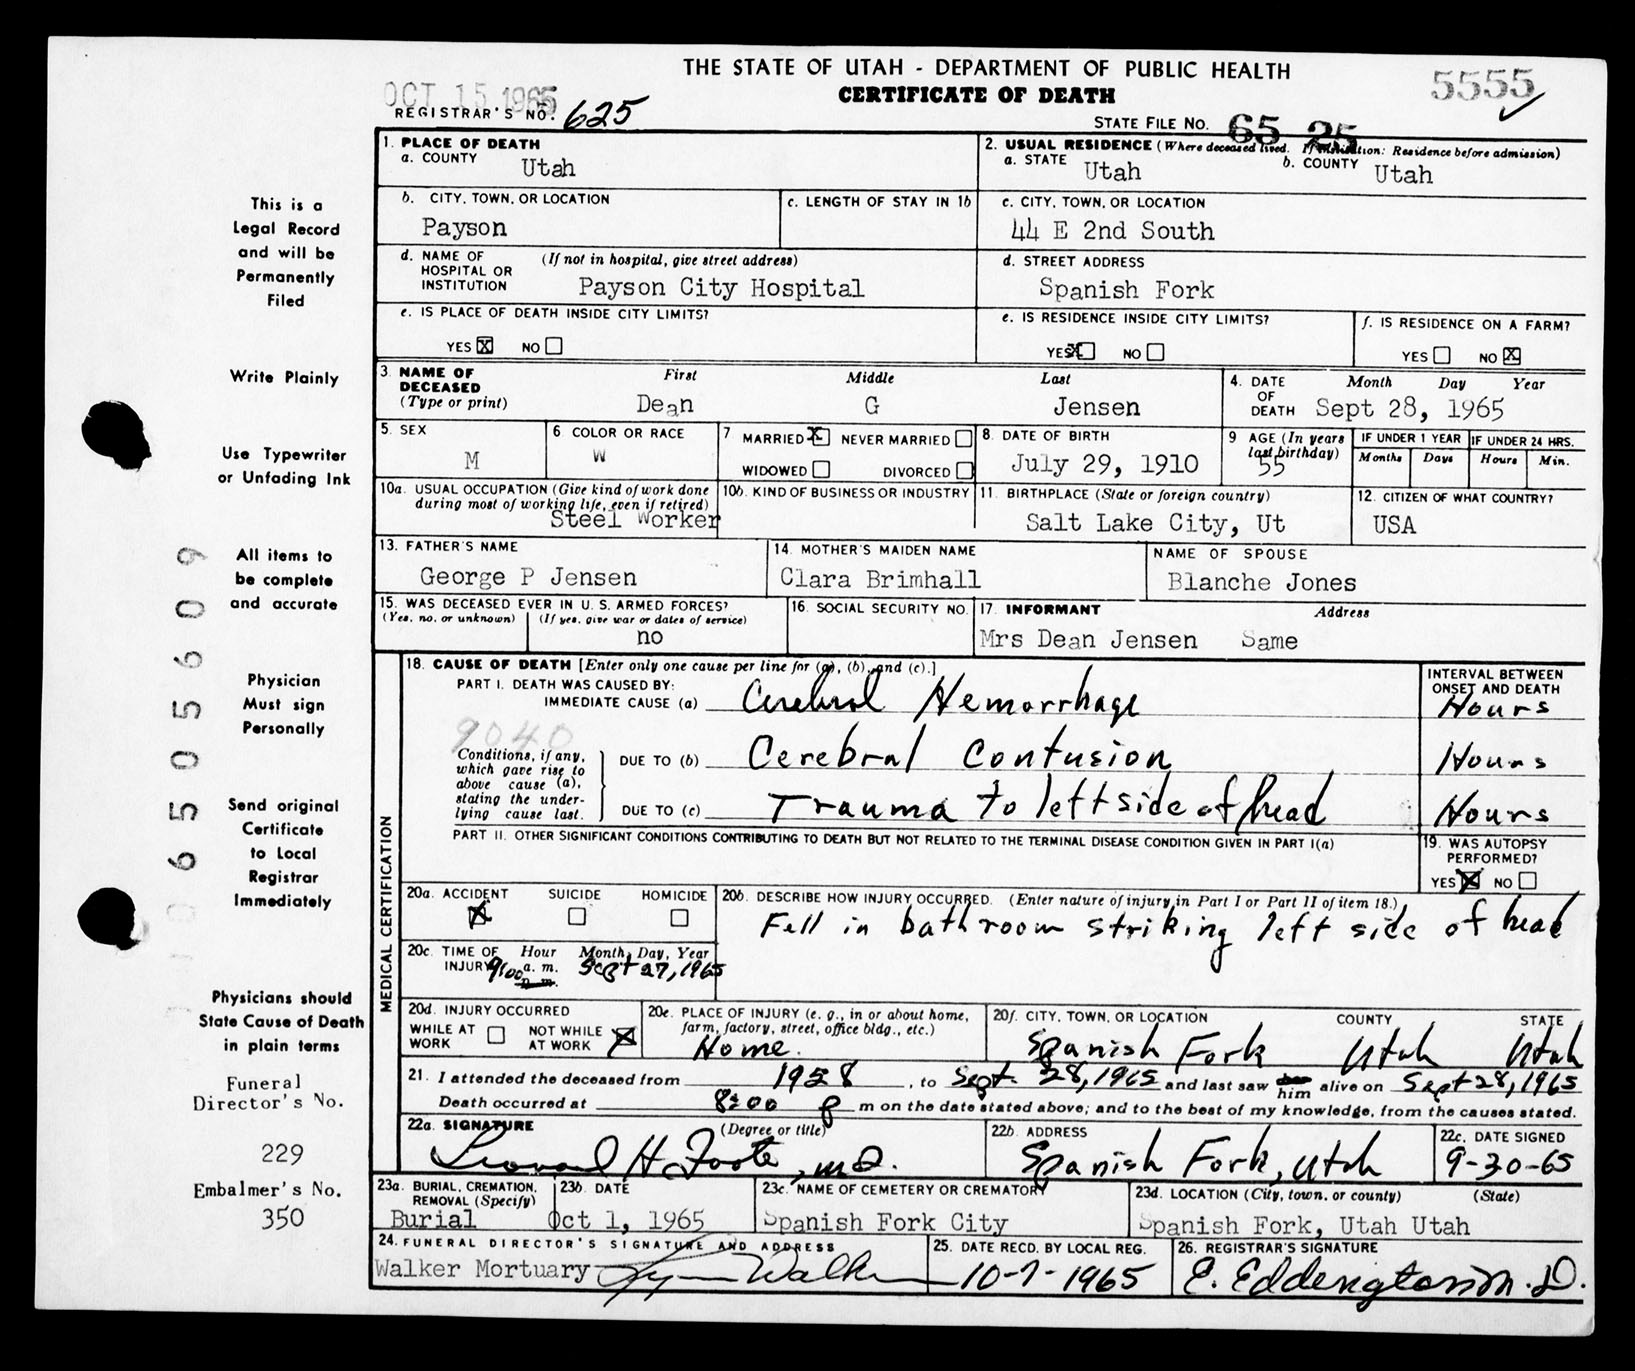 THE STATE OF UTAH - DEPARTMENT OF PUBLIC HEALTH
CERTIFICATE OF DEATH
5555
OCT 15 1965
REGISTRAR'S NO. 625
STATE FILE NO. 65 25
This is a
Legal Record
and will be
Permanently
Filed
Write Plainly
Use Typewriter
or Unfading Ink
All items to
be complete
and accurate
Physician
Must sign
Personally
Send original
Certificate
to Local
Registrar
Immediately
Physicians should
State Cause of Death
in plain terms
Funeral
Director's No.
229
Embalmer's No.
350
65 05609
1. PLACE OF DEATH
a. COUNTY Utah
2. USUAL RESIDENCE (Where deceased lived. If institution: Residence before admission)
a. STATE Utah b. COUNTY Utah
b. CITY, TOWN, OR LOCATION
Payson
c. LENGTH OF STAY IN 1b
c. CITY, TOWN, OR LOCATION
44 E 2nd South
d. NAME OF HOSPITAL OR INSTITUTION (If not in hospital, give street address)
Payson City Hospital
d. STREET ADDRESS
Spanish Fork
e. IS PLACE OF DEATH INSIDE CITY LIMITS?
YES X NO
e. IS RESIDENCE INSIDE CITY LIMITS?
YES X NO
f. IS RESIDENCE ON A FARM?
YES NO X
3. NAME OF DECEASED (Type or print)
First Middle Last
Dean G Jensen
4. DATE OF DEATH Month Day Year
Sept 28, 1965
5. SEX
M
6. COLOR OR RACE
W
7 MARRIED X NEVER MARRIED
WIDOWED DIVORCED
8. DATE OF BIRTH
July 29, 1910
9 AGE (In years last birthday)
55
IF UNDER 1 YEAR
Months Days
IF UNDER 24 HRS.
Hours Min.
10a. USUAL OCCUPATION (Give kind of work done during most of working life, even if retired)
Steel Worker
10b. KIND OF BUSINESS OR INDUSTRY
11. BIRTHPLACE (State or foreign country)
Salt Lake City, Ut
12. CITIZEN OF WHAT COUNTRY?
USA
13. FATHER'S NAME
George P Jensen
14. MOTHER'S MAIDEN NAME
Clara Brimhall
NAME OF SPOUSE
Blanche Jones
15. WAS DECEASED EVER IN U.S. ARMED FORCES?
(Yes, no, or unknown) (If yes, give war or dates of service)
no
16. SOCIAL SECURITY NO.
17. INFORMANT Address
Mrs Dean Jensen Same
MEDICAL CERTIFICATION
18. CAUSE OF DEATH [Enter only one cause per line for (a), (b), and (c).]
INTERVAL BETWEEN
ONSET AND DEATH
PART I. DEATH WAS CAUSED BY:
IMMEDIATE CAUSE (a) Cerebral Hemorrhage Hours
9040
Conditions, if any, which gave rise to above cause (a), stating the underlying cause last.
DUE TO (b) Cerebral Contusion Hours
DUE TO (c) Trauma to left side of head Hours
PART II. OTHER SIGNIFICANT CONDITIONS CONTRIBUTING TO DEATH BUT NOT RELATED TO THE TERMINAL DISEASE CONDITION GIVEN IN PART I(a)
19. WAS AUTOPSY PERFORMED?
YES X NO
20a. ACCIDENT SUICIDE HOMICIDE
X
20b. DESCRIBE HOW INJURY OCCURRED. (Enter nature of injury in Part I or Part II of item 18.)
Fell in bathroom striking left side of head
20c. TIME OF INJURY Hour Month, Day, Year
9:00 a. m. p. m. Sept 27, 1965
20d. INJURY OCCURRED
WHILE AT WORK NOT WHILE AT WORK X
20e. PLACE OF INJURY (e. g., in or about home, farm, factory, street, office bldg., etc.)
Home.
20f. CITY, TOWN, OR LOCATION COUNTY STATE
Spanish Fork Utah Utah
21. I attended the deceased from 1958, to Sept. 28, 1965 and last saw her him alive on Sept 28, 1965
Death occurred at 8:00 p m on the date stated above; and to the best of my knowledge, from the causes stated.
22a. SIGNATURE (Degree or title)
Leonard H. Foote, M.D.
22b. ADDRESS
Spanish Fork, Utah
22c. DATE SIGNED
9-30-65
23a. BURIAL, CREMATION, REMOVAL (Specify)
Burial
23b. DATE
Oct 1, 1965
23c. NAME OF CEMETERY OR CREMATORY
Spanish Fork City
23d. LOCATION (City, town, or county) (State)
Spanish Fork, Utah Utah
24. FUNERAL DIRECTOR'S SIGNATURE AND ADDRESS
Walker Mortuary Walker
25. DATE RECD. BY LOCAL REG.
10-7-1965
26. REGISTRAR'S SIGNATURE
E. Eddington M.D.